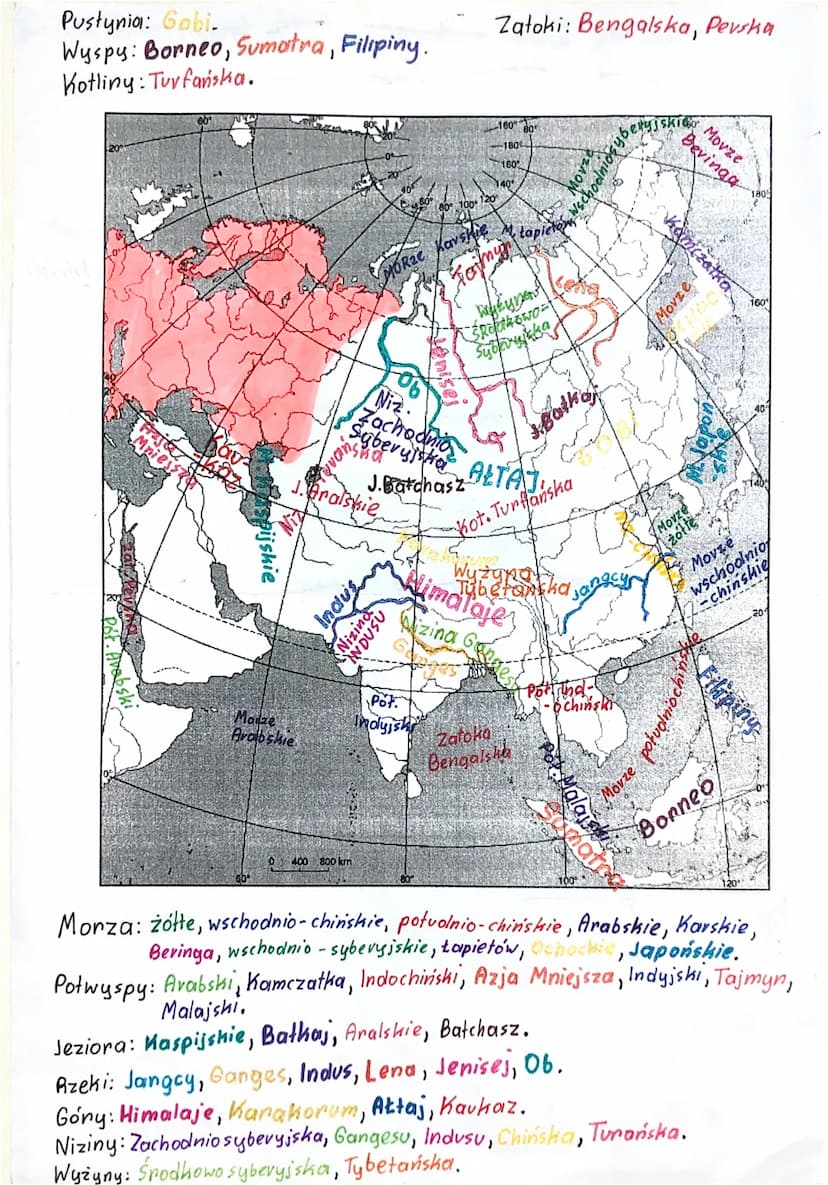 Pustynia: Gobi.
Wyspy: Borneo, Sumatra, Filipiny.
Kotliny: Turfańska.
Zatoki: Bengalska, Perska
60°
80°
20°
20°
0°
20°
40°
60°
80°
100°
120°
140°
160°
180°
160°
80°
60°
180°
160°
40°
140°
20°
0°
120°
100°
80°
60°
0°
20°
40°
Morze wschodniosyberyjskie
Morze Beringa
Kamczatka
Morze Karskie
M. Łapietów
Tajmyr
Lena
Wyżyna Środkowo-Syberyjska
Morze Ochockie
Jenisej
Ob
Niz. Zachodnio Syberyjska
J. Bałkaj
GOBI
M. Japoń-skie
Azja Mniejsza
Kau-kaz
M. Kaspijskie
Niz. Turańska
J. Aralskie
J. Bałchasz
AŁTAJ
Kot. Turfańska
Morze żółte
Niz. chińska
Morze wschodnio-chińskie
Karakorum
Wyżyna Tybetańska
Himalaje
Jangcy
Indus
Nizina INDUSU
Nizina Gangesu
Ganges
Zat. Perska
Pół. Arabski
Pół. Indyjski
Pół. Ind-ochiński
Morze Arabskie
Zatoka Bengalska
Pół. Malajski
Morze południochińskie
Filipiny
Sumatra
Borneo
0 400 800 km
Morza: żółte, wschodnio-chińskie, południo-chińskie, Arabskie, Karskie,
Beringa, wschodnio-syberyjskie, Łapietów, Ochockie, Japońskie.
Półwyspy: Arabski, Kamczatka, Indochiński, Azja Mniejsza, Indyjski, Tajmyr,
Malajski.
Jeziora: Kaspijskie, Bałkaj, Aralskie, Bałchasz.
Rzeki: Jangcy, Ganges, Indus, Lena, Jenisej, Ob.
Góry: Himalaje, Karakorum, Ałtaj, Kaukaz.
Niziny: Zachodniosyberyjska, Gangesu, Indusu, Chińska, Turańska.
Wyżyny: Środkowosyberyjska, Tybetańska.